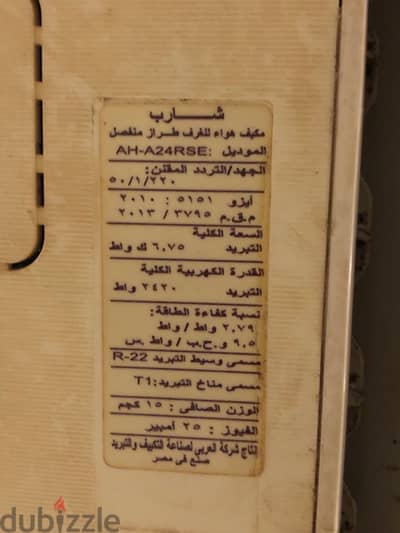 شارب
مكيف هواء للغرف طراز منفصل
الموديل :AH-A24RSE
الجهد/التردد المقنن:
٥٠/١/٢٢٠
أيزو ٥١٥١ : ٢٠١٠
م.ق.م ٣٧٩٥ / ٢٠١٣
السعة الكلية
التبريد ٦.٧٥ ك واط
القدرة الكهربية الكلية
التبريد ٢٤٢٠ واط
نسبة كفاءة الطاقة:
٢.٧٩ واط / واط
٩.٥ و.ح.ب / واط.س
مسمى وسيط التبريد R-22
مسمى مناخ التبريد:T1
الوزن الصافى : ١٥ كجم
الفيوز : ٢٥ أمبير
إنتاج شركة العربي لصناعة التكييف والتبريد
صنع فى مصر
dubizzle